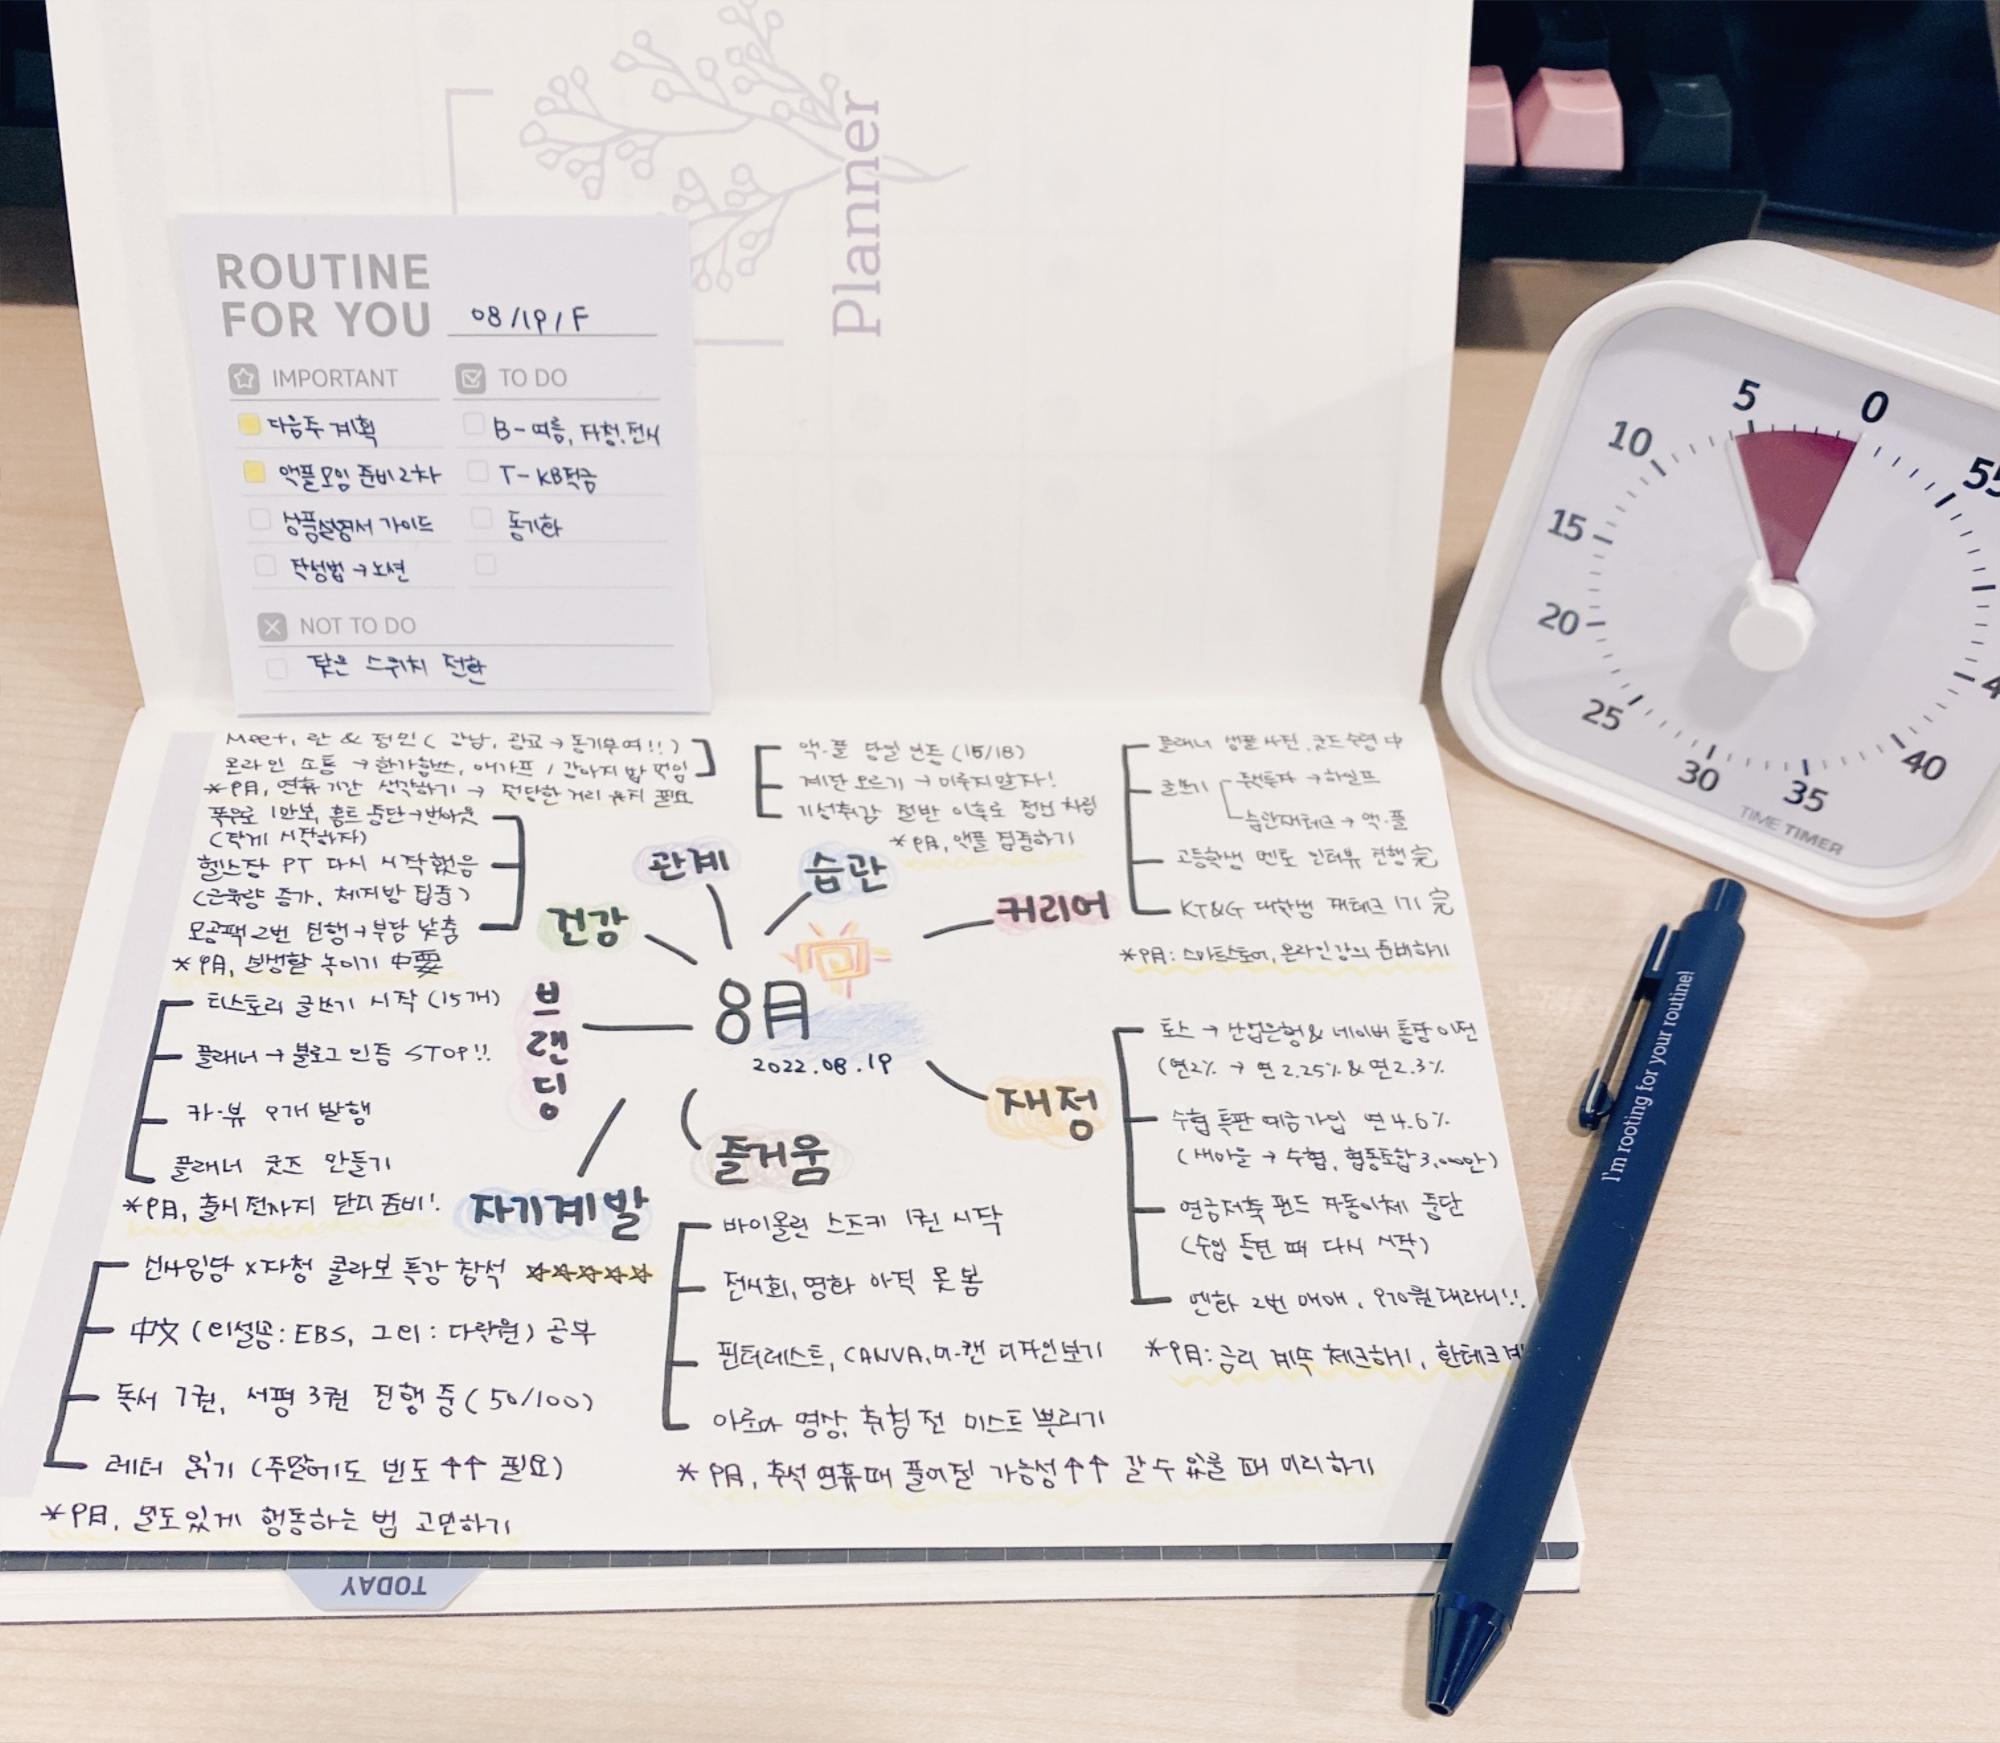 Planner
ROUTINE
FOR YOU
08/19/F
IMPORTANT
다음주 계획
액플모임 준비 2차
상품설명서 가이드
작성법 → 노션
TO DO
B - 여름, 자청, 전시
T - KB적금
동기화
NOT TO DO
잦은 스위치 전환
Meet, 란 & 정민 (강남, 광교 → 동기부여!!)
온라인 소통 → 한가한쓰, 애가프 / 강아지 밥 먹임
*9月, 연휴기간 생각하기 → 적당한 거리 유지 필요
관계
액·플 당일 인증 (15/18)
계단 오르기 → 미루지말자!
기성취감 절반 이후로 정신 차림
*9月, 액플 집중하기
습관
플래너 샘플 사진, 굿즈수령 中
글쓰기
주식투자 → 하실프
습관재테크 → 액·플
고등학생 멘토 인터뷰 진행 完
KT&G 대학생 재테크 1기 完
*9月: 스마트스토어, 온라인강의 준비하기
커리어
폭우로 1만보, 홈트 중단 → 번아웃
(작게 시작하자)
헬스장 PT 다시 시작했음
(근육량 증가, 체지방 집중)
모공팩 2번 진행 → 부담 낮춤
*9月, 실생활 녹이기 中要
건강
8月
2022.08.19
티스토리 글쓰기 시작 (15개)
플래너 → 블로그 인증 STOP!!
카·뷰 9개 발행
플래너 굿즈 만들기
*9月, 출시 전까지 단디 준비!
브랜딩
토스 → 산업은행 & 네이버 통장 이전
(연2% → 연 2.25% & 연2.3%
수협 특판 예금가입 연 4.6%
(새마을 → 수협, 협동조합 3,000만)
연금저축 펀드 자동이체 중단
(수입 증진 때 다시 시작)
엔화 2번 매매, 970원대라니!!
*9月: 금리 계속 체크하기, 환테크
재정
자기계발
신사임당 x 자청 콜라보 특강 참석 ☆☆☆☆☆
中文 (리설공: EBS, 그리: 다락원) 공부
독서 7권, 서평 3권 진행 중 (50/100)
레터 읽기 (주말에도 빈도 ↑↑ 필요)
*9月, 밀도있게 행동하는 법 고민하기
즐거움
바이올린 스즈키 1권 시작
전시회, 영화 아직 못 봄
핀터레스트, CANVA, 미·캔 디자인보기
아로마 명상, 취침 전 미스트 뿌리기
*9月, 추석 연휴때 풀어질 가능성 ↑↑ 갈 수 있을 때 미리하기
TODAY
I'm rooting for your routine!
0
5
10
15
20
25
30
35
40
4
55
TIME TIMER